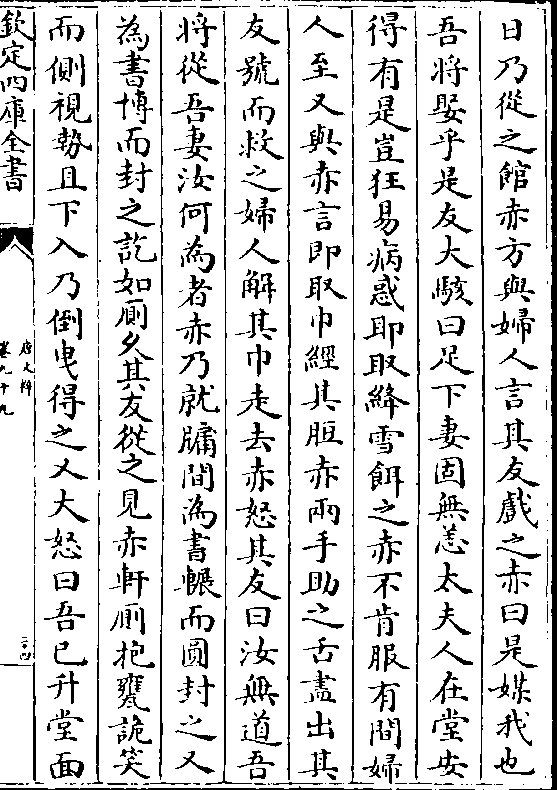 日乃從之館赤方與婦人言其友戲之赤曰是媒我也
吾將娶乎是友大駭曰足下妻固無恙太夫人在堂安
得有是豈狂易病惑耶取絳雪餌之赤不肯服有間婦
人至又與赤言即取巾經其脰赤兩手助之舌盡出其
友號而救之婦人解其巾走去赤怒其友曰汝無道吾
將從吾妻汝何為者赤乃就牖間為書輾而圓封之又
為書博而封之訖如厠久其友從之見赤軒厠抱甕詭笑
而側視勢且下入乃倒曳得之又大怒曰吾已升堂面
欽定四庫全書
唐文粹
卷九十九
二十四